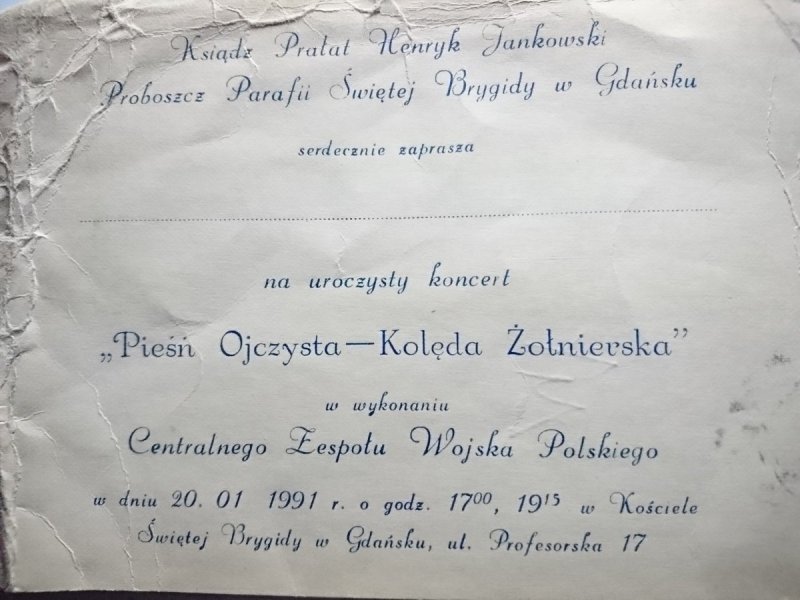 Ksiądz Prałat Henryk Jankowski
Proboszcz Parafii Świętej Brygidy w Gdańsku
serdecznie zaprasza
na uroczysty koncert
„Pieśń Ojczysta — Kolęda Żołnierska”
w wykonaniu
Centralnego Zespołu Wojska Polskiego
w dniu 20. 01 1991 r. o godz. 17⁰⁰, 19¹⁵ w Kościele
Świętej Brygidy w Gdańsku, ul. Profesorska 17